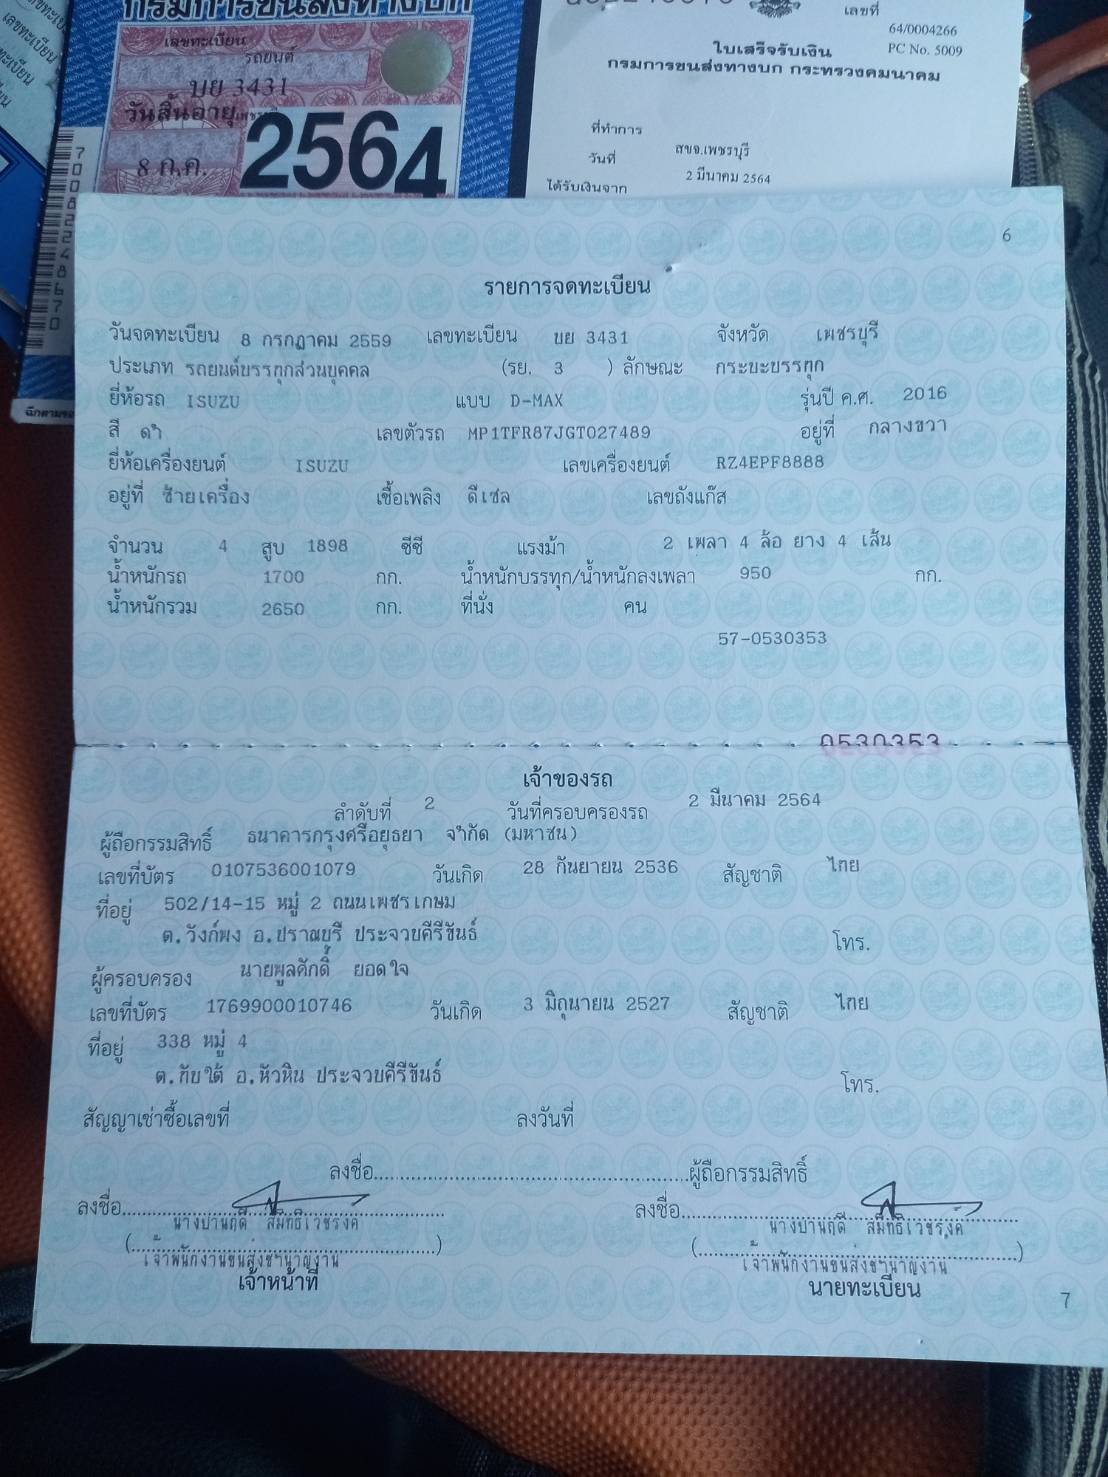 กรมการขนส่งทางบก
เลขทะเบียน
รถยนต์
บย 3431
วันสิ้นอายุ
8 ก.ค.
2564
เลขที่
64/0004266
ใบเสร็จรับเงิน
PC No. 5009
กรมการขนส่งทางบก กระทรวงคมนาคม
ที่ทำการ สขจ.เพชรบุรี
วันที่ 2 มีนาคม 2564
ได้รับเงินจาก
6
รายการจดทะเบียน
วันจดทะเบียน 8 กรกฎาคม 2559 เลขทะเบียน บย 3431 จังหวัด เพชรบุรี
ประเภท รถยนต์บรรทุกส่วนบุคคล (รย. 3 ) ลักษณะ กระบะบรรทุก
ยี่ห้อรถ ISUZU แบบ D-MAX รุ่นปี ค.ศ. 2016
สี ดำ เลขตัวรถ MP1TFR87JGT027489 อยู่ที่ กลางขวา
ยี่ห้อเครื่องยนต์ ISUZU เลขเครื่องยนต์ RZ4EPF8888
อยู่ที่ ซ้ายเครื่อง เชื้อเพลิง ดีเซล เลขถังแก๊ส
จำนวน 4 สูบ 1898 ซีซี แรงม้า 2 เพลา 4 ล้อ ยาง 4 เส้น
น้ำหนักรถ 1700 กก. น้ำหนักบรรทุก/น้ำหนักลงเพลา 950 กก.
น้ำหนักรวม 2650 กก. ที่นั่ง คน
57-0530353
0530353
เจ้าของรถ
ลำดับที่ 2 วันที่ครอบครองรถ 2 มีนาคม 2564
ผู้ถือกรรมสิทธิ์ ธนาคารกรุงศรีอยุธยา จำกัด (มหาชน)
เลขที่บัตร 0107536001079 วันเกิด 28 กันยายน 2536 สัญชาติ ไทย
ที่อยู่ 502/14-15 หมู่ 2 ถนนเพชรเกษม
ต.วังก์พง อ.ปราณบุรี ประจวบคีรีขันธ์ โทร.
ผู้ครอบครอง นายพูลศักดิ์ ยอดใจ
เลขที่บัตร 1769900010746 วันเกิด 3 มิถุนายน 2527 สัญชาติ ไทย
ที่อยู่ 338 หมู่ 4
ต.ทับใต้ อ.หัวหิน ประจวบคีรีขันธ์ โทร.
สัญญาเช่าซื้อเลขที่ ลงวันที่
ลงชื่อ ผู้ถือกรรมสิทธิ์
ลงชื่อ ลงชื่อ
นางปานฤดี สัมิทธิเวชรงค์ นางปานฤดี สัมิทธิเวชรงค์
( เจ้าพนักงานขนส่งชำนาญงาน ) ( เจ้าพนักงานขนส่งชำนาญงาน )
เจ้าหน้าที่ นายทะเบียน
7